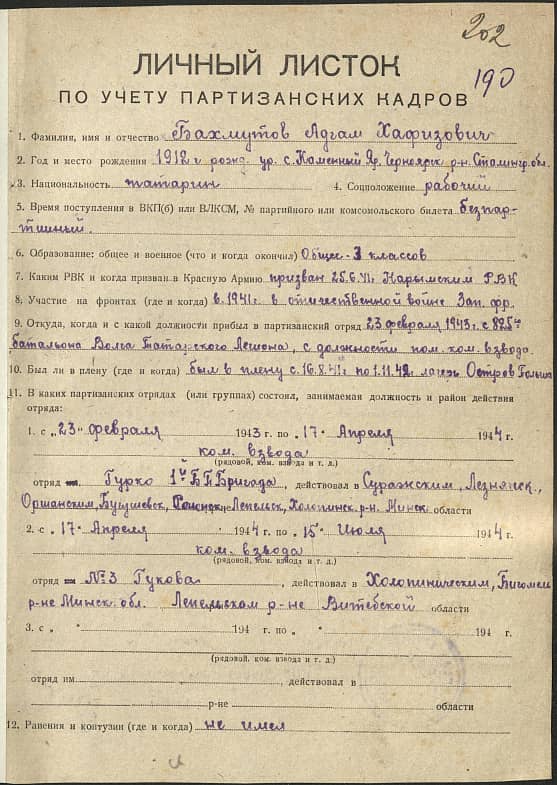 202
190
ЛИЧНЫЙ ЛИСТОК
ПО УЧЕТУ ПАРТИЗАНСКИХ КАДРОВ
1. Фамилия, имя и отчество Бахмутов Адгам Хафизович
2. Год и место рождения 1918 г. рожд. ур. с. Каменный Яр, Черноярск. р-н Сталингр. обл.
3. Национальность татарин 4. Соцположение рабочий
5. Время поступления в ВКП(б) или ВЛКСМ, № партийного или комсомольского билета беспар-
тийный.
6. Образование: общее и военное (что и когда окончил) Общее - 3 классов
7. Каким РВК и когда призван в Красную Армию призван 25.6.41 г. Нарымским РВК
8. Участие на фронтах (где и когда) в 1941 г. в отечественной войне Зап. фр.
9. Откуда, когда и с какой должности прибыл в партизанский отряд 23 февраля 1943 г. с 825го
батальона Волга Татарского Легиона, с должности пом. ком. взвода
10. Был ли в плену (где и когда) был в плену с 16.8.41 г. по 1.11.42 лагерь Остров
11. В каких партизанских отрядах (или группах) состоял, занимаемая должность и район действия
отряда:
1. с „23" февраля 1943 г. по „17" Апреля 1944 г.
ком. взвода
(рядовой, ком. взвода и т. д.)
отряд Гурко 1й Б П Бригада, действовал в Суражским, Лезнянск.,
Оршанским, Лепельск, Холопинск. р-н. Минск области
2. с „17" Апреля 1944 г. по „15" Июля 1944 г.
ком. взвода
(рядовой, ком. взвода и т. д.)
отряд №3 Гукова, действовал в Холопиническим, Бигомел
р-не Минск. обл. Лепельском р-не Витебской области
3. с „ " 194 г. по „ " 194 г.
(рядовой, ком. взвода и т. д.)
отряд им , действовал в
р-не области
12. Ранения и контузии (где и когда) не имел